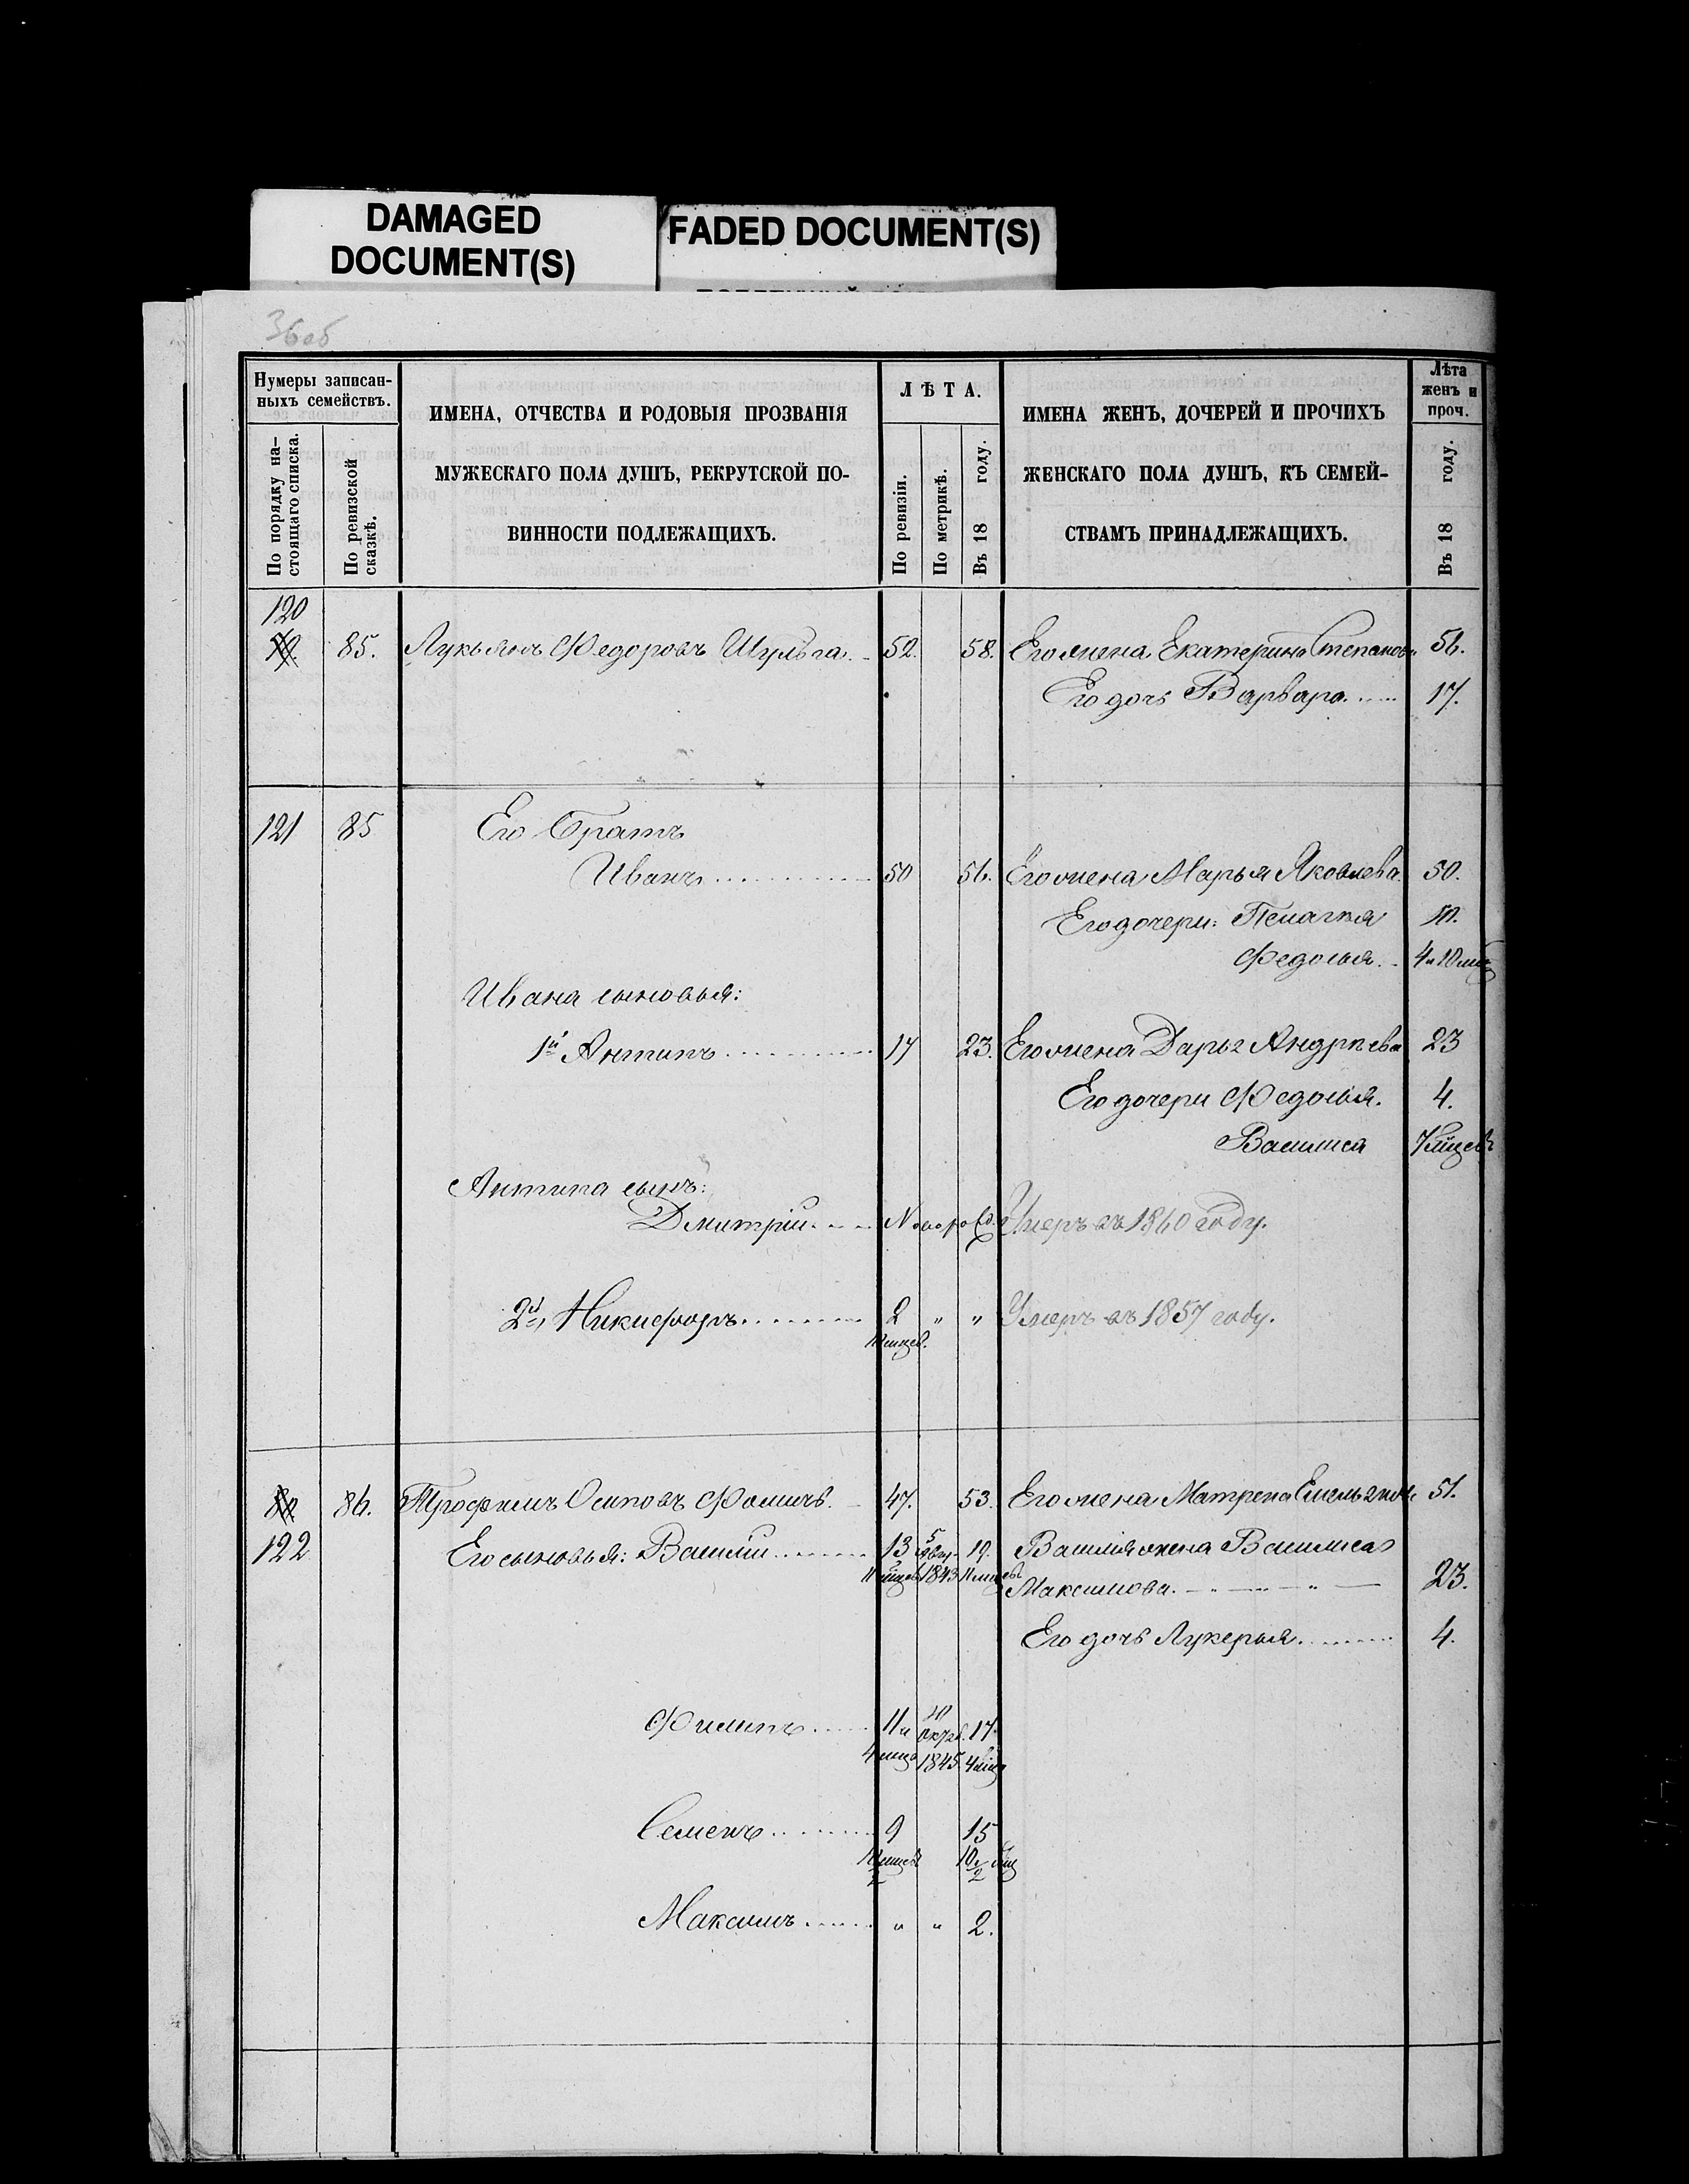 DAMAGED
DOCUMENT(S)
FADED DOCUMENT(S)
36об
Нумеры записан-
ныхъ семействъ.
По порядку на-
стоящаго списка.
По ревизской
сказкѣ.
ИМЕНА, ОТЧЕСТВА И РОДОВЫЯ ПРОЗВАНІЯ
МУЖЕСКАГО ПОЛА ДУШЪ, РЕКРУТСКОЙ ПО-
ВИННОСТИ ПОДЛЕЖАЩИХЪ.
ЛѢТА.
По ревизіи.
По метрикѣ.
Въ 18 году.
ИМЕНА ЖЕНЪ, ДОЧЕРЕЙ И ПРОЧИХЪ
ЖЕНСКАГО ПОЛА ДУШЪ, КЪ СЕМЕЙ-
СТВАМЪ ПРИНАДЛЕЖАЩИХЪ.
Лѣта
женъ и
проч.
Въ 18 году.
120
85. Лукьянъ Федоровъ Шульга 52. 58. Его жена Екатерина Степанова 56.
Его дочь Варвара 17.
121 85 Его Братъ
Иванъ 50 56. Его жена Марья Яковлева 50.
Его дочери: Пелагея 10.
Федосья 4 и 10 мѣс
Ивана сыновья:
1й Антипъ 17 23. Его жена Дарья Андрѣева 23
Его дочери Федосья. 4.
Василиса 7 мѣсцев
Антипа сынъ:
Дмитрій Новорожд. Умеръ въ 1860 году.
2й, Никифоръ 2 " " Умеръ въ 1857 году.
мѣсцев.
80. 86. Трофимъ Осиповъ Фомичъ. 47. 53. Его жена Матрена Емельянов 51.
122 Его сыновья: Василій 13 5 19. Василія жена Василиса
11 мѣсцевъ 1843 11 мѣсцевъ Максимова. 23.
Его дочь Лукерья 4.
Филипъ 11 и 10 Октяб. 17.
4 мѣсц 1845 4 мѣсц
Семенъ 9 15
10 1/2 мѣсц
Максимъ " " 2.